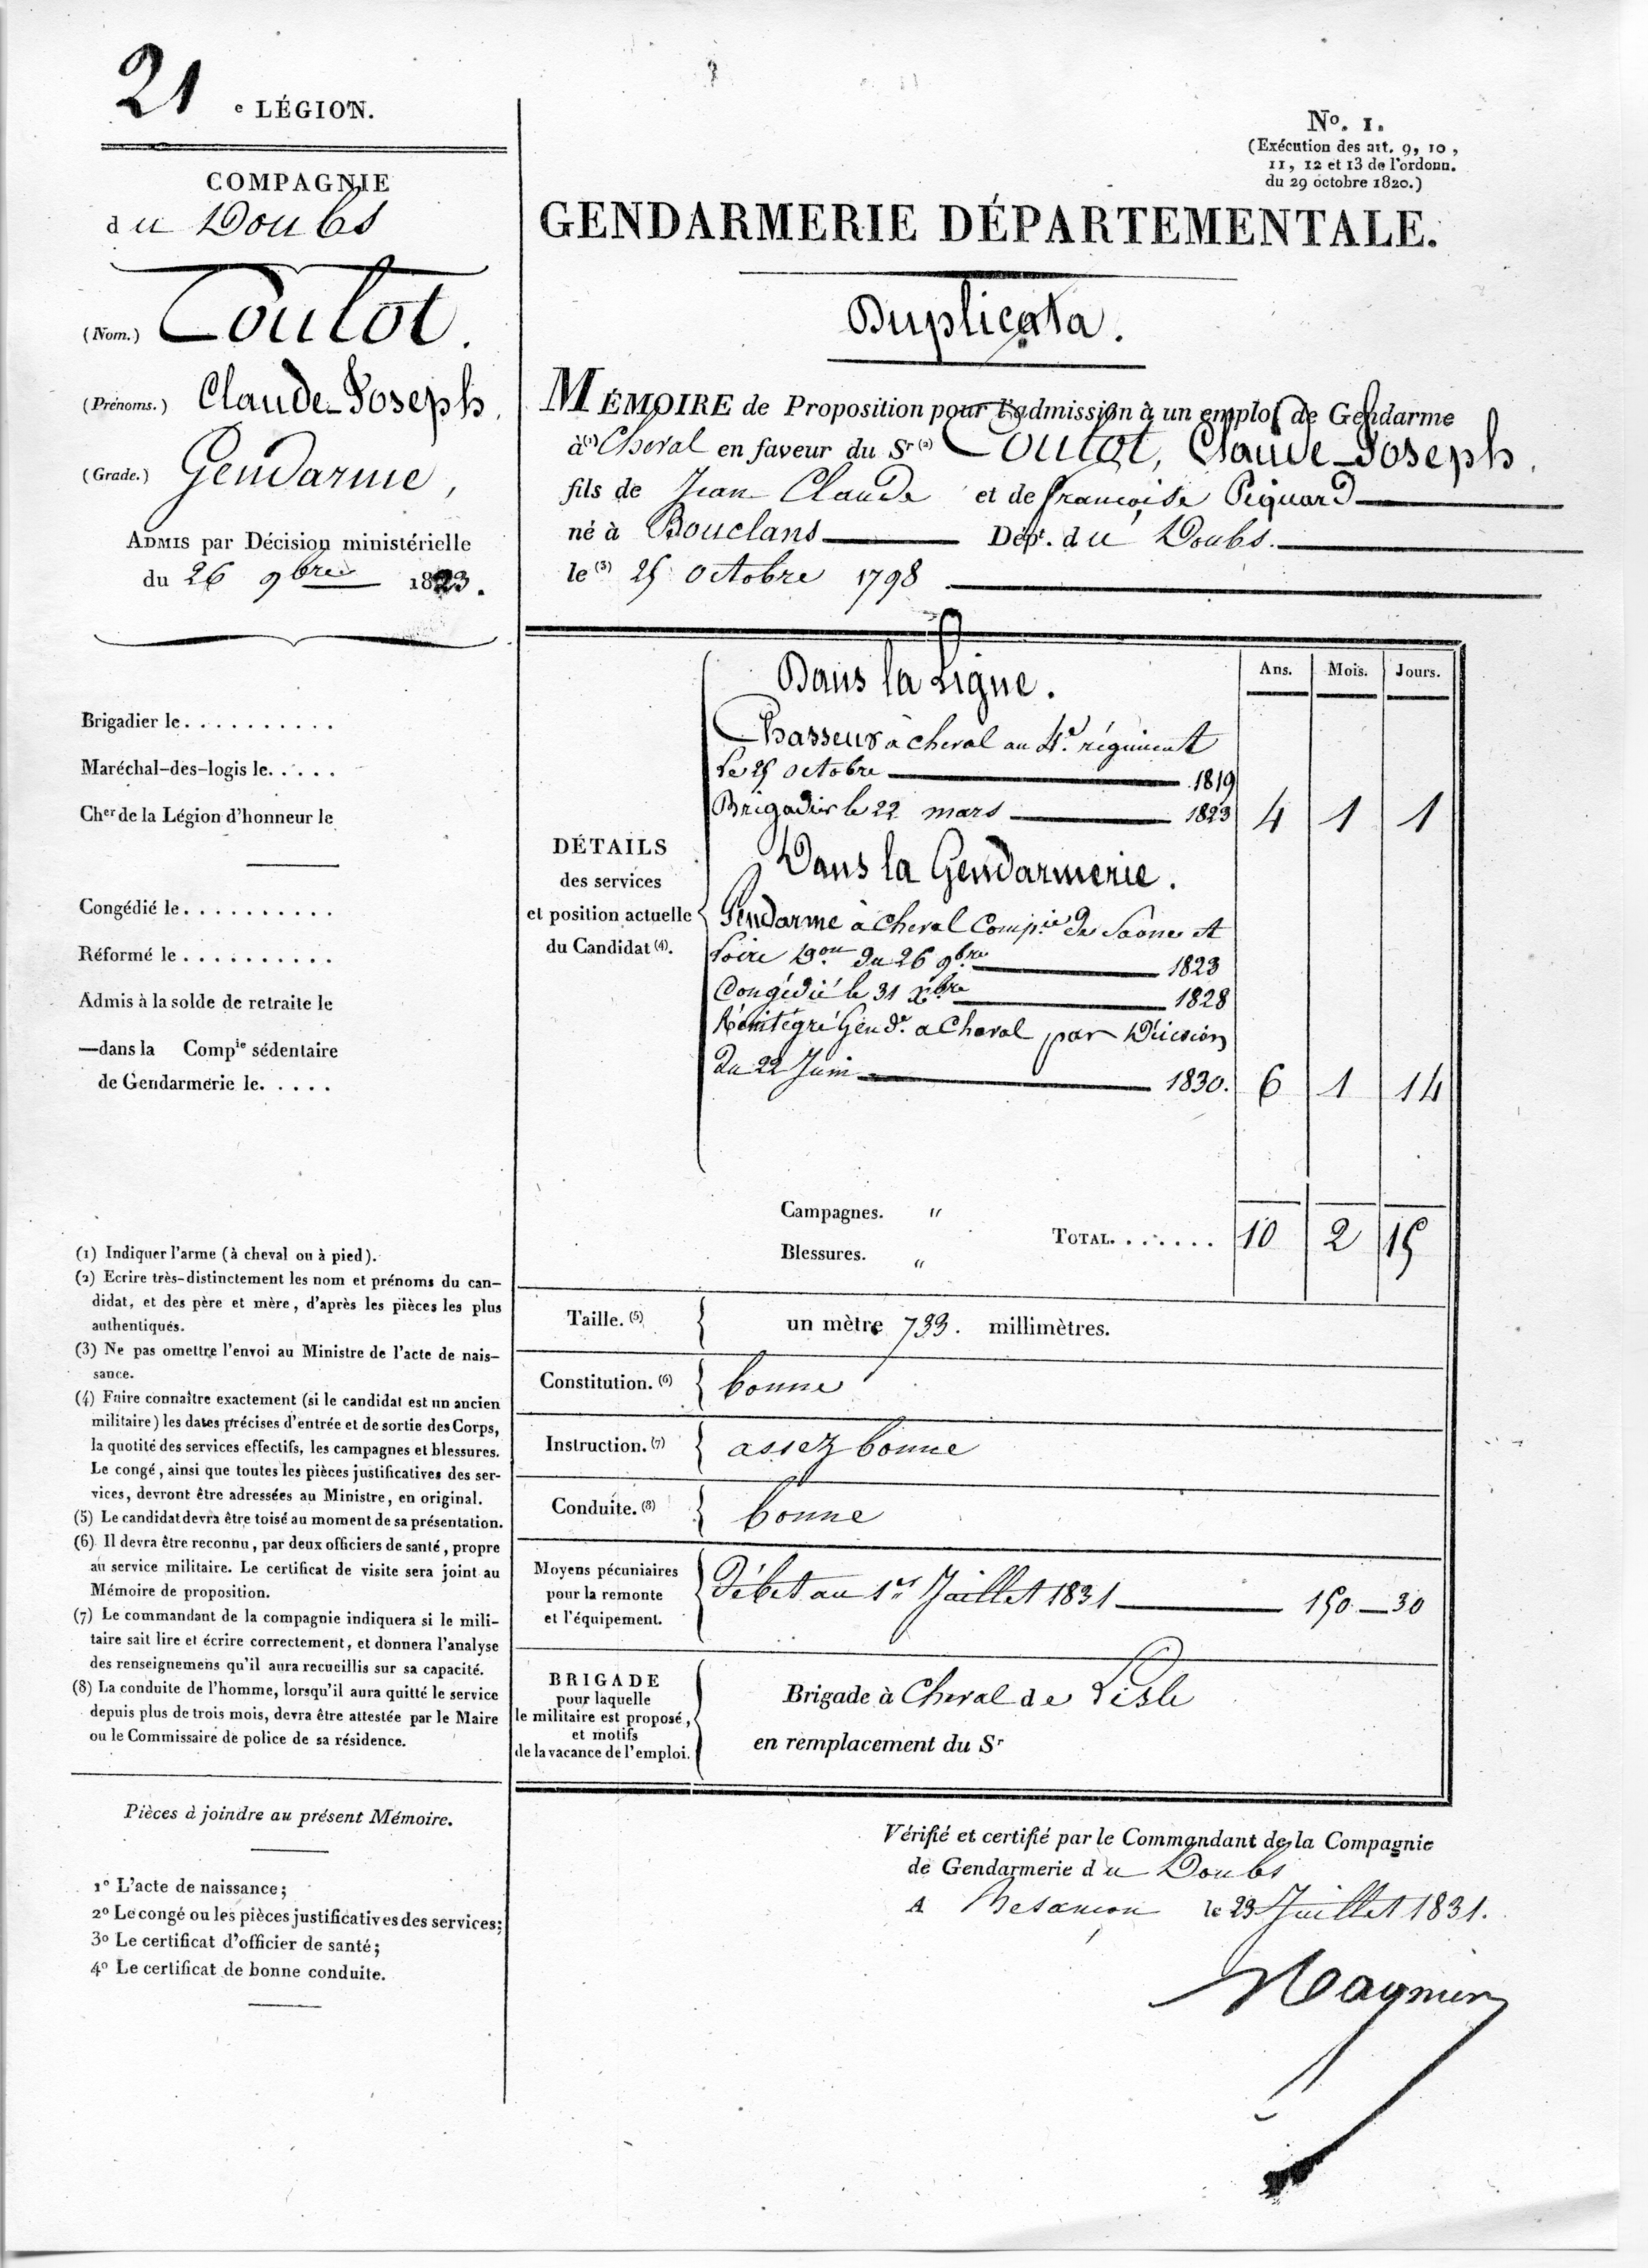 21 e LÉGION.
COMPAGNIE
du Doubs
(Nom.) Coulot.
(Prénoms.) Claude-Joseph,
(Grade.) Gendarme,
ADMIS par Décision ministérielle
du 26 9bre 1823.
Brigadier le..........
Maréchal-des-logis le.....
Cher de la Légion d'honneur le
Congédié le..........
Réformé le..........
Admis à la solde de retraite le
—dans la Compie sédentaire
de Gendarmerie le.....
(1) Indiquer l'arme (à cheval ou à pied).
(2) Ecrire très-distinctement les nom et prénoms du can-
didat, et des père et mère, d'après les pièces les plus
authentiques.
(3) Ne pas omettre l'envoi au Ministre de l'acte de nais-
sance.
(4) Faire connaître exactement (si le candidat est un ancien
militaire) les dates précises d'entrée et de sortie des Corps,
la quotité des services effectifs, les campagnes et blessures.
Le congé, ainsi que toutes les pièces justificatives des ser-
vices, devront être adressées au Ministre, en original.
(5) Le candidat devra être toisé au moment de sa présentation.
(6) Il devra être reconnu, par deux officiers de santé, propre
au service militaire. Le certificat de visite sera joint au
Mémoire de proposition.
(7) Le commandant de la compagnie indiquera si le mili-
taire sait lire et écrire correctement, et donnera l'analyse
des renseignemens qu'il aura recueillis sur sa capacité.
(8) La conduite de l'homme, lorsqu'il aura quitté le service
depuis plus de trois mois, devra être attestée par le Maire
ou le Commissaire de police de sa résidence.
Pièces à joindre au présent Mémoire.
1o L'acte de naissance;
2o Le congé ou les pièces justificatives des services;
3o Le certificat d'officier de santé;
4o Le certificat de bonne conduite.
No. 1.
(Exécution des art. 9, 10,
11, 12 et 13 de l'ordonn.
du 29 octobre 1820.)
GENDARMERIE DÉPARTEMENTALE.
Duplicata.
MÉMOIRE de Proposition pour l'admission à un emploi de Gendarme
à (1) Cheval en faveur du Sr (2) Coulot, Claude-Joseph,
fils de Jean Claude et de françoise Péquard
né à Bouclans Dépt. du Doubs.
le (3) 25 octobre 1798
Ans. Mois. Jours.
DÉTAILS
des services
et position actuelle
du Candidat (4).
Dans la Ligne.
Chasseur à cheval au 4e. régiment
le 25 octobre 1819
Brigadier le 22 mars 1823 4 1 1
Dans la Gendarmerie.
Gendarme à cheval Compie de Saone et
Loire Don du 26 9bre 1823
Congédié le 31 Xbre 1828
Réintégré Gende. a Cheval par Décision
du 22 Juin 1830. 6 1 14
Campagnes. "
Blessures. "
TOTAL....... 10 2 15
Taille. (5) un mètre 733. millimètres.
Constitution. (6) bonne
Instruction. (7) assez bonne
Conduite. (8) bonne
Moyens pécuniaires
pour la remonte
et l'équipement.
Débet au 1er Juillet 1831 150—30
BRIGADE
pour laquelle
le militaire est proposé,
et motifs
de la vacance de l'emploi.
Brigade à Cheval de Lisle
en remplacement du Sr
Vérifié et certifié par le Commandant de la Compagnie
de Gendarmerie du Doubs
A Besançon le 23 Juillet 1831.